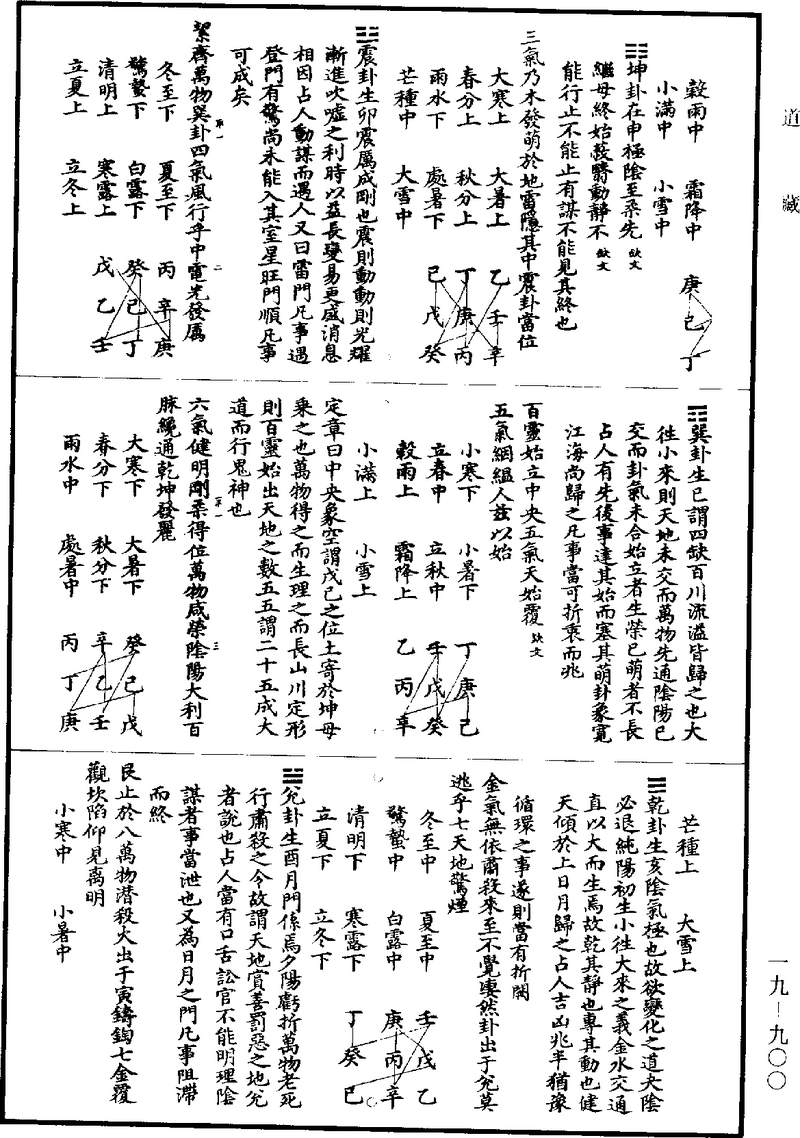 道藏
穀雨中　霜降中　庚
小滿中　小雪中　己
丁
䷁坤卦在申極陰至柔先　缺文
繼母終始蔽翳動靜不　缺文
能行止不能止有謀不能見其終也
三氣乃木發萌於地雷隱其中震卦當位
大寒上　大暑上　乙壬辛
春分上　秋分上　丁庚丙
雨水下　處暑下　己戊癸
芒種中　大雪中
䷲震卦生卯震厲成剛也震則動動則光耀
漸進吹噓之利時以益長變易更盛消息
相因占人動謀而遇人又曰雷門凡事遇
登門有驚尚未能入其室星旺門順凡事
可成矣
絜齊萬物巽卦四氣風行乎中電光發厲
冬至下　夏至下　丙辛庚
驚蟄下　白露下　癸己丁
清明上　寒露上　戊乙壬
立夏上　立冬上
䷸巽卦生巳謂四缺百川流溢皆歸之也大
往小來則天地未交而萬物先通陰陽已
交而卦氣未合始立者生榮已萌者不長
占人有先後事達其始而塞其萌卦象寬
江海尚歸之凡事當可折衷而兆
百靈始立中央五氣天始覆　缺文
五氣網縕人茲以始
小寒下　小暑下　丁庚己
立春中　立秋中　壬戊癸
穀雨上　霜降上　乙丙辛
小滿上　小雪上
定章曰中央象空謂戊己之位土寄於坤母
乘之也萬物得之而生理之而長山川定形
則百靈始出天地之數五五謂二十五成大
道而行鬼神也
六氣健明剛柔得位萬物咸榮陰陽大利百
脉纔通乾坤發麗
大寒下　大暑下　癸己戊
春分下　秋分下　辛乙壬
雨水中　處暑中　丙丁庚
芒種上　大雪上
䷀乾卦生亥陰氣極也故欲變化之道夫陰
必退純陽初生小往大來之義金水交通
直以大而生焉故乾其靜也專其動也健
天傾於上日月歸之占人吉凶兆半猶豫
循環之事遂則當有折閱
金氣無依肅殺來至不覺悽然卦出于兌莫
逃乎七天地驚煙
冬至中　夏至中　壬戊乙
驚蟄中　白露中　庚丙辛
清明下　寒露下　丁癸己
立夏下　立冬下
䷹兌卦生酉月門係焉夕陽虧折萬物老死
行肅殺之令故謂天地賞善罰惡之地兌
者說也占人當有口舌訟官不能明理陰
謀者事當泄也又為日月之門凡事阻滯
而終
艮止於八萬物潛殺火出于寅鑄鋾七金覆
觀坎陷仰見离明
小寒中　小暑中
一九—九〇〇